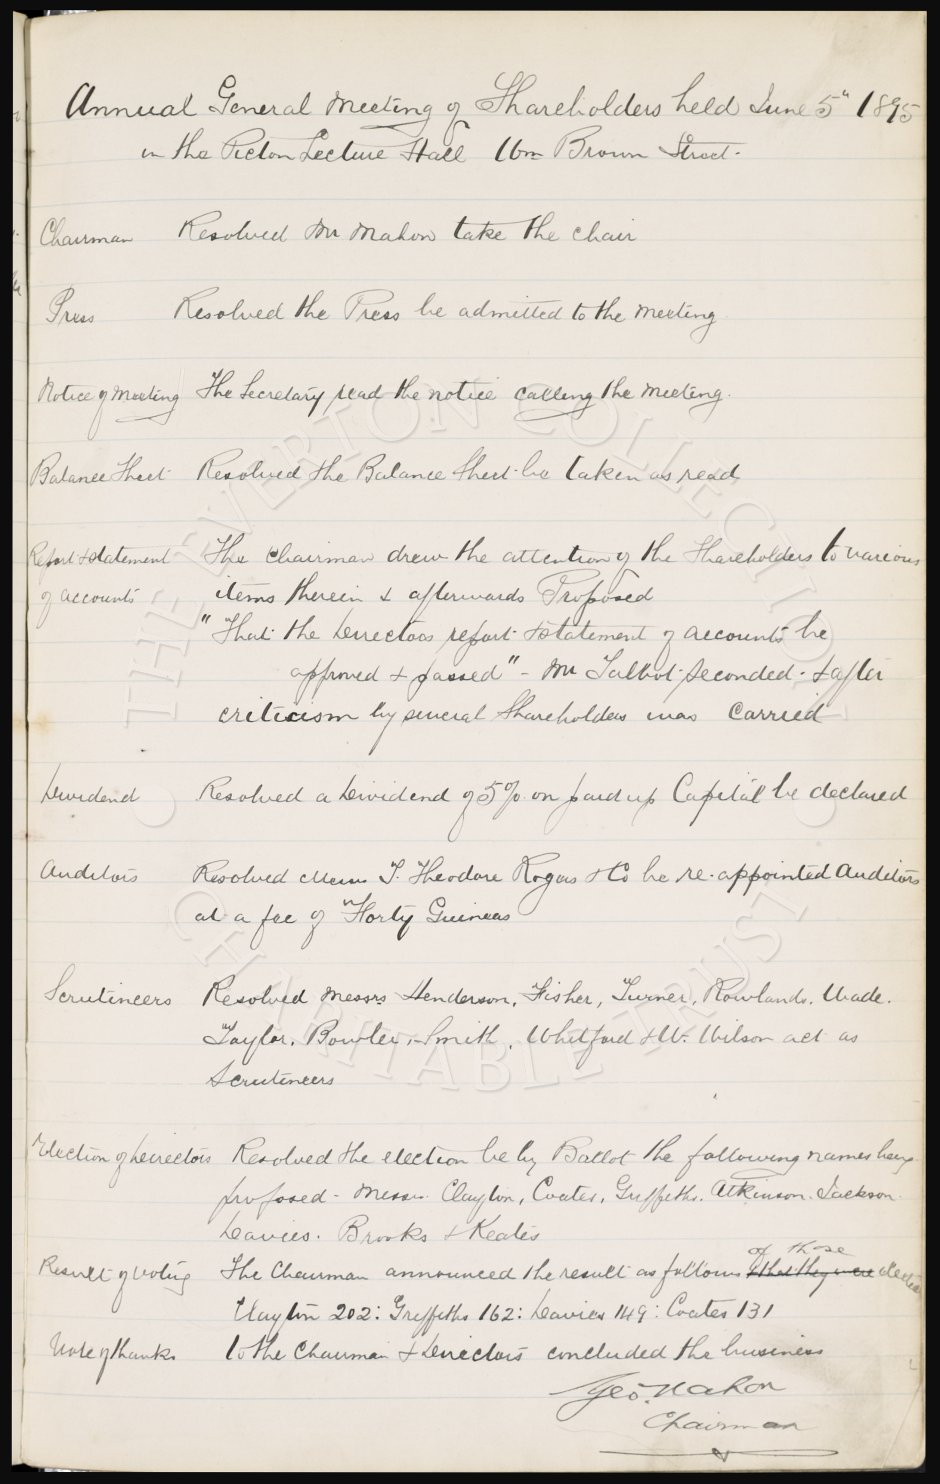 Annual General Meeting of Shareholders held June 5th 1895
in the Picton Lecture Hall Wm Brown Street.
Chairman Resolved Mr Mahon take the chair
Press Resolved the Press be admitted to the meeting
Notice of Meeting The Secretary read the notice calling the meeting.
Balance Sheet Resolved the Balance Sheet be taken as read
Report & statement The Chairman drew the attention of the Shareholders to various
of accounts items therein & afterwards Proposed
"That the Directors report & statement of accounts be
approved & passed" - Mr Talbot seconded. & after
criticism by several Shareholders was carried
Dividend Resolved a Dividend of 5% on paid up Capital be declared
Auditors Resolved Messrs T. Theodore Rogers & Co be re-appointed Auditors
at a fee of Forty Guineas
Scrutineers Resolved Messrs Henderson, Fisher, Turner, Rowlands, Wade.
Taylor, Bowler, Smith, Whitford & W. Wilson act as
Scrutineers
Election of Directors Resolved the election be by Ballot the following names being
proposed - Messrs Clayton, Coates, Griffiths. Atkinson. Jackson.
Davies. Brooks & Keates
of those
Result of Voting The Chairman announced the result as follows & that they were elected
Clayton 202: Griffiths 162: Davies 149: Coates 131
Vote of thanks to the Chairman & Directors concluded the business
Geo. Mahon
Chairman
THE EVERTON COLLECTION
CHARITABLE TRUST